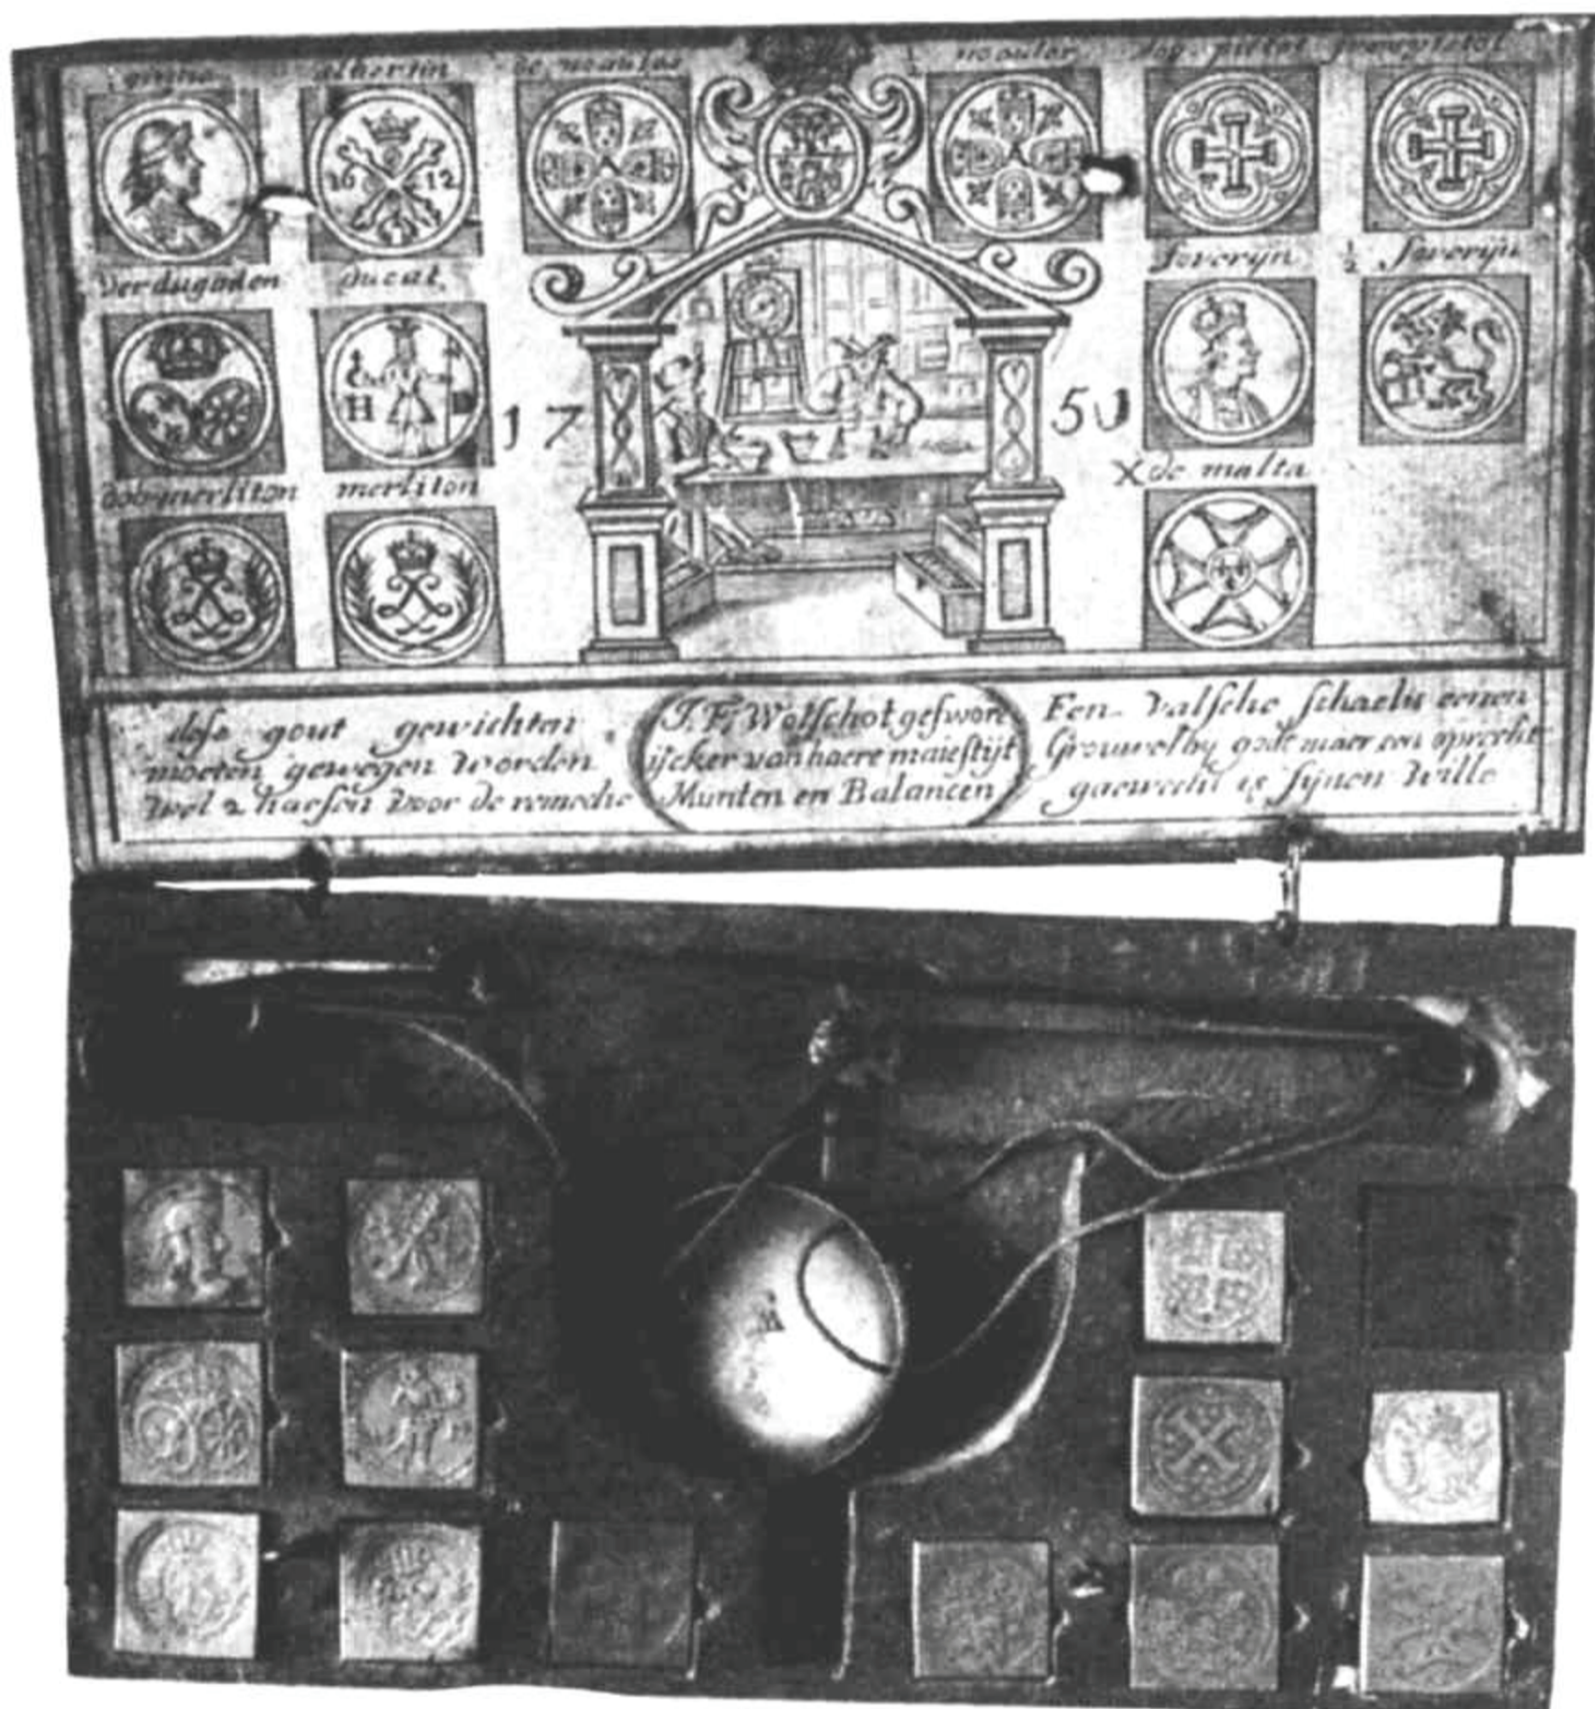 albertin de noailles ½ noailles
1612
Verdugaden Ducat Soveryn ½ Soveryn
H
17 50
dob merliton merliton X de malta
dese gout gewichten
moeten gewegen worden
wel 2 haesen voor de remedie
J. F. Wolschot geswore
ijcker van haere maiestijt
Munten en Balancen
Een valsche schaele eenen
Grouwel by godt maer een oprecht
gaewecht is sijnen wille
M